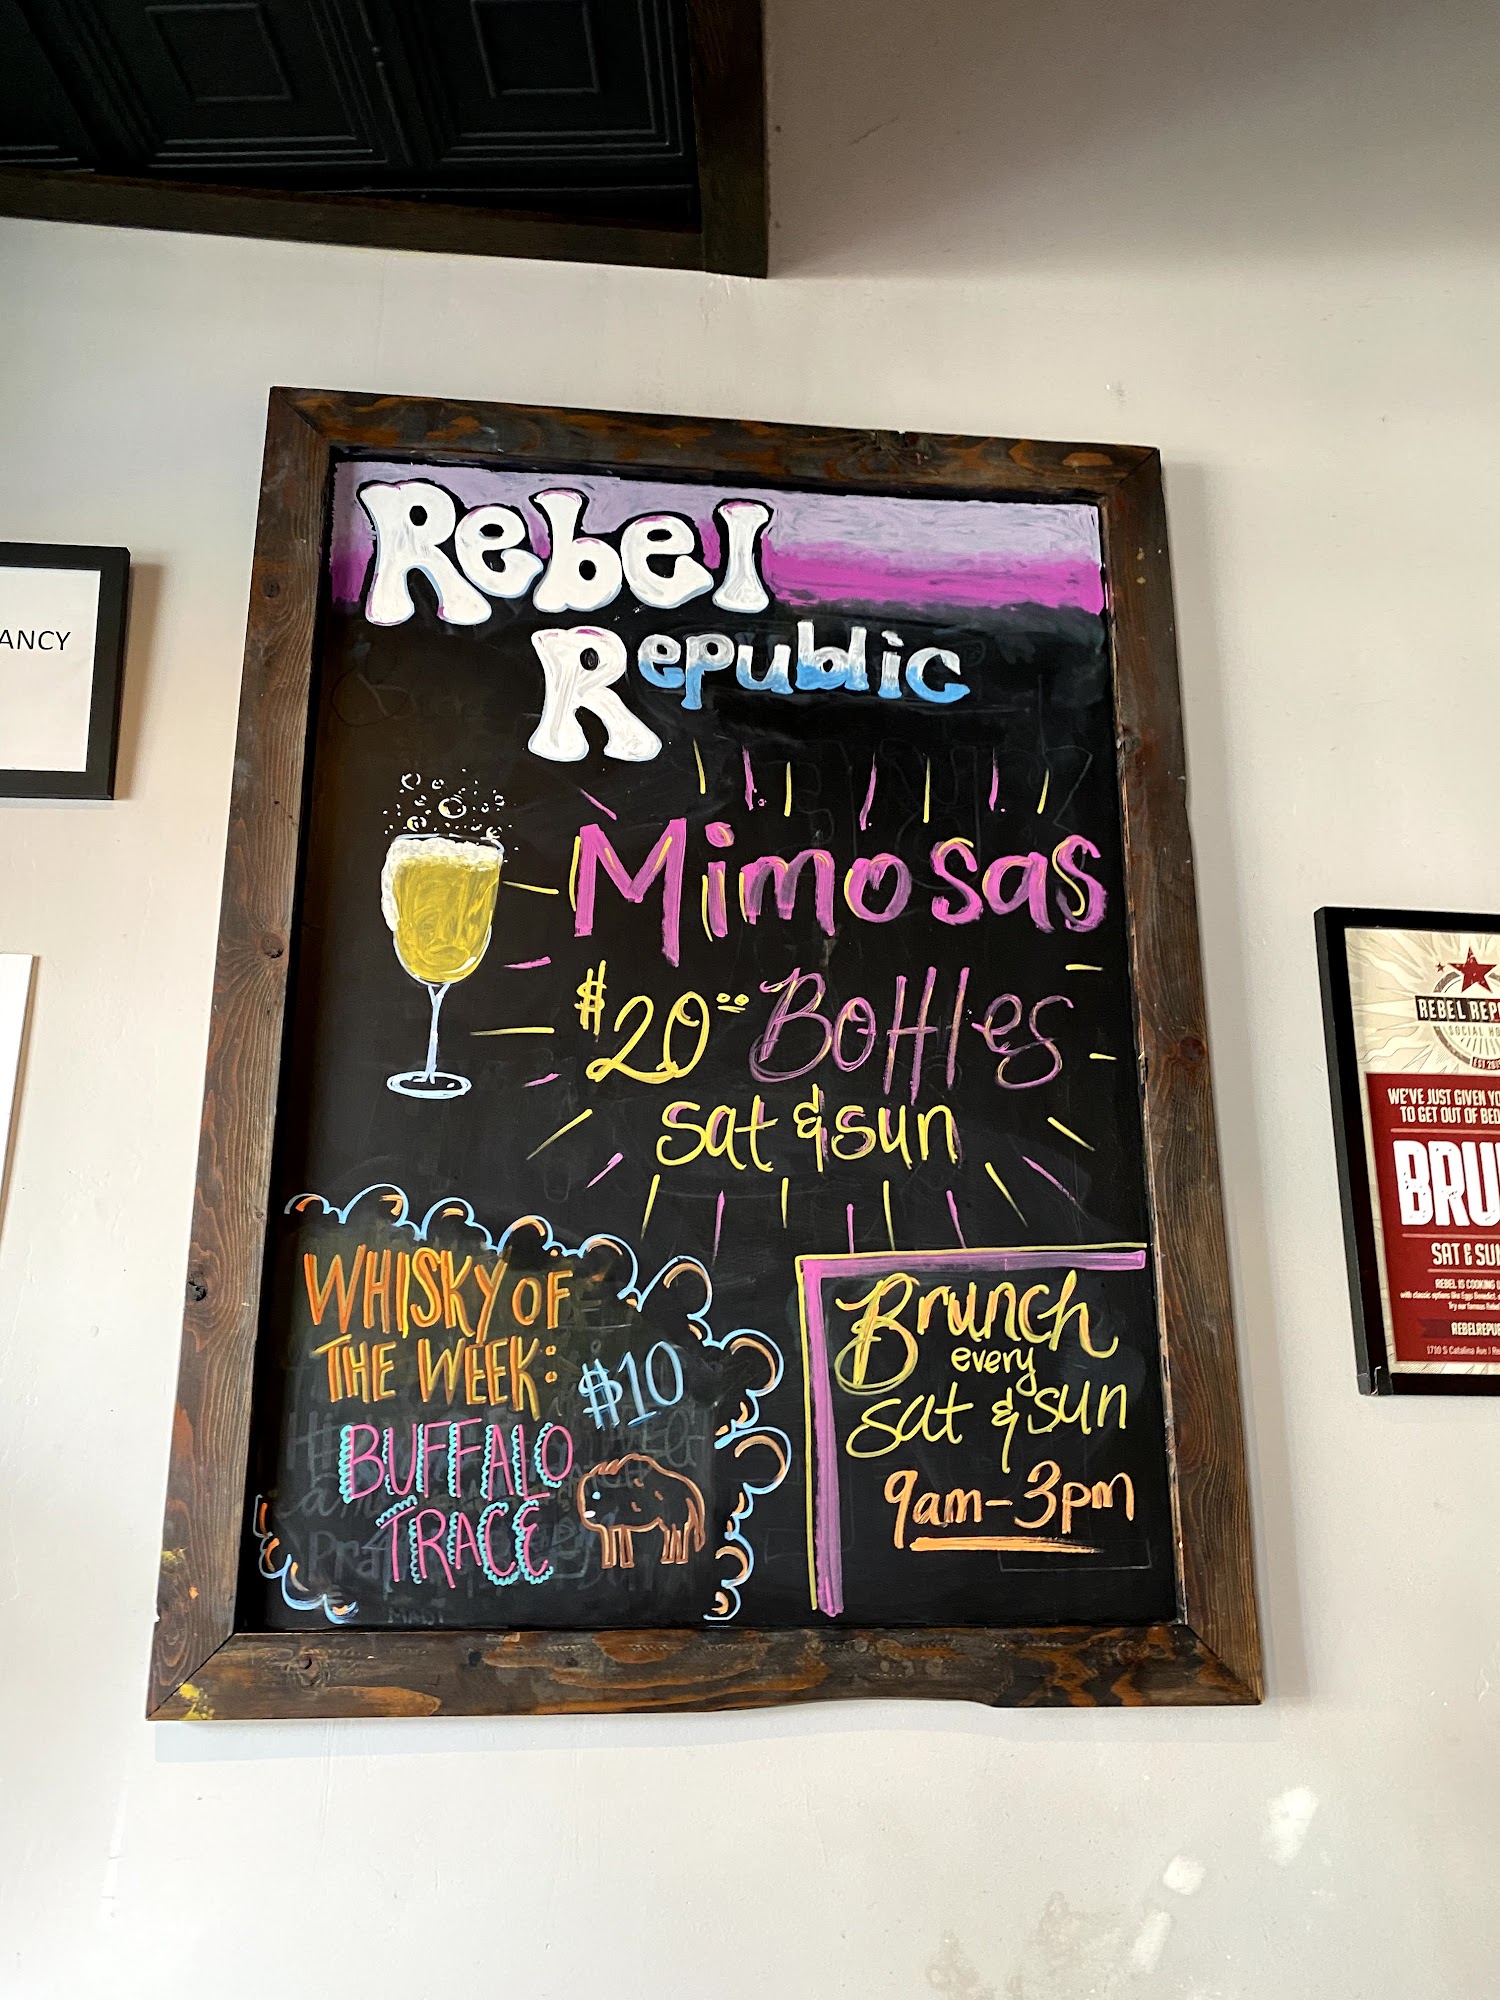 Rebel
Republic
Mimosas
$20.00 Bottles
sat & sun
WHISKY OF
THE WEEK:
$10
BUFFALO
TRACE
Brunch
every
sat & sun
9am-3pm
ANCY
REBEL REP
SOCIAL HO
WE'VE JUST GIVEN YO
TO GET OUT OF BED
BRU
SAT & SU
REBEL IS COOKING
REBELREPU
1710 S Catalina Ave | Re